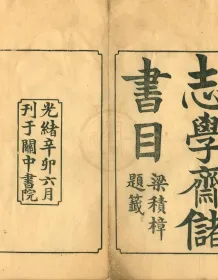 志學齋儲
書目
梁積樟
題籤
光緒辛卯六月
刊于關中書院